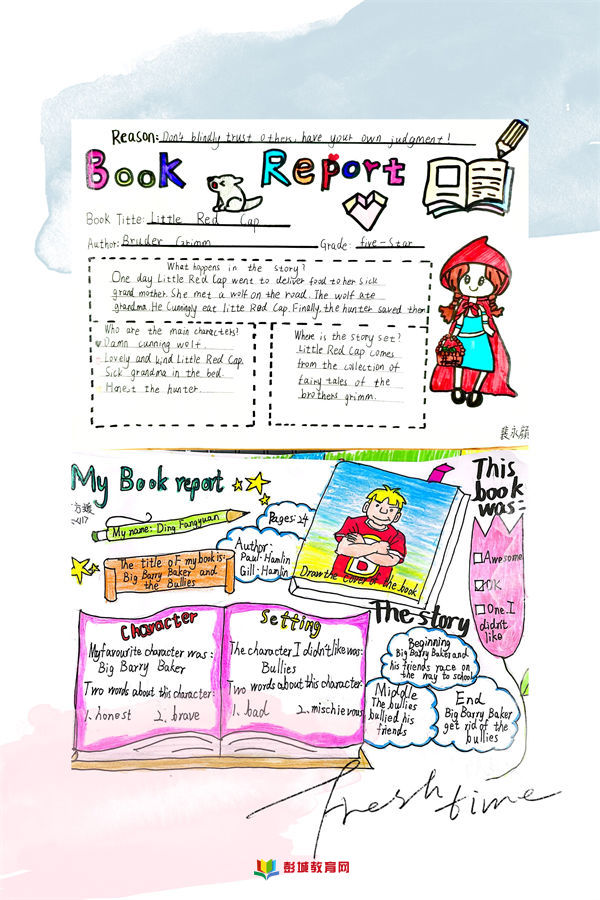 Reason: Don't blindly trust others, have your own judgment!
Book Report
Book Titte: Little Red Cap
Author: Bruder Grimm Grade: five-star
What happens in the story?
One day Little Red Cap went to deliver food to her sick
grand mother. She met a wolf on the road. The wolf ate
grandma. He Cunningly eat little Red Cap. Finally, the hunter saved them
Who are the main characters?
Damn cunning wolf.
Lovely and kind Little Red Cap.
Sick grandma in the bed.
Honest the hunter.
Where is the story set?
Little Red Cap comes
from the collection of
fairy tales of the
brothers grimm.
My Book report
My name: Ding Fangyuan
The title of my book is:
Big Barry Baker and
the Bullies
Pages: 24
Author:
Paul·Hamlin
Gill·Hamlin
Draw the cover of the book
This
book
was:
Awesome
OK
One.I
didn't
like
Character
My favourite character was:
Big Barry Baker
Two words about this character:
1. honest 2. brave
Setting
The character I didn't like was:
Bullies
Two words about this character:
1. bad 2. mischievous
The story
Beginning
Big Barry Baker and
his friends race on
the way to school
Middle
The bullies
bullied his
friends
End
Big Barry Baker
get rid of the
bullies
fresh time
彭城教育网